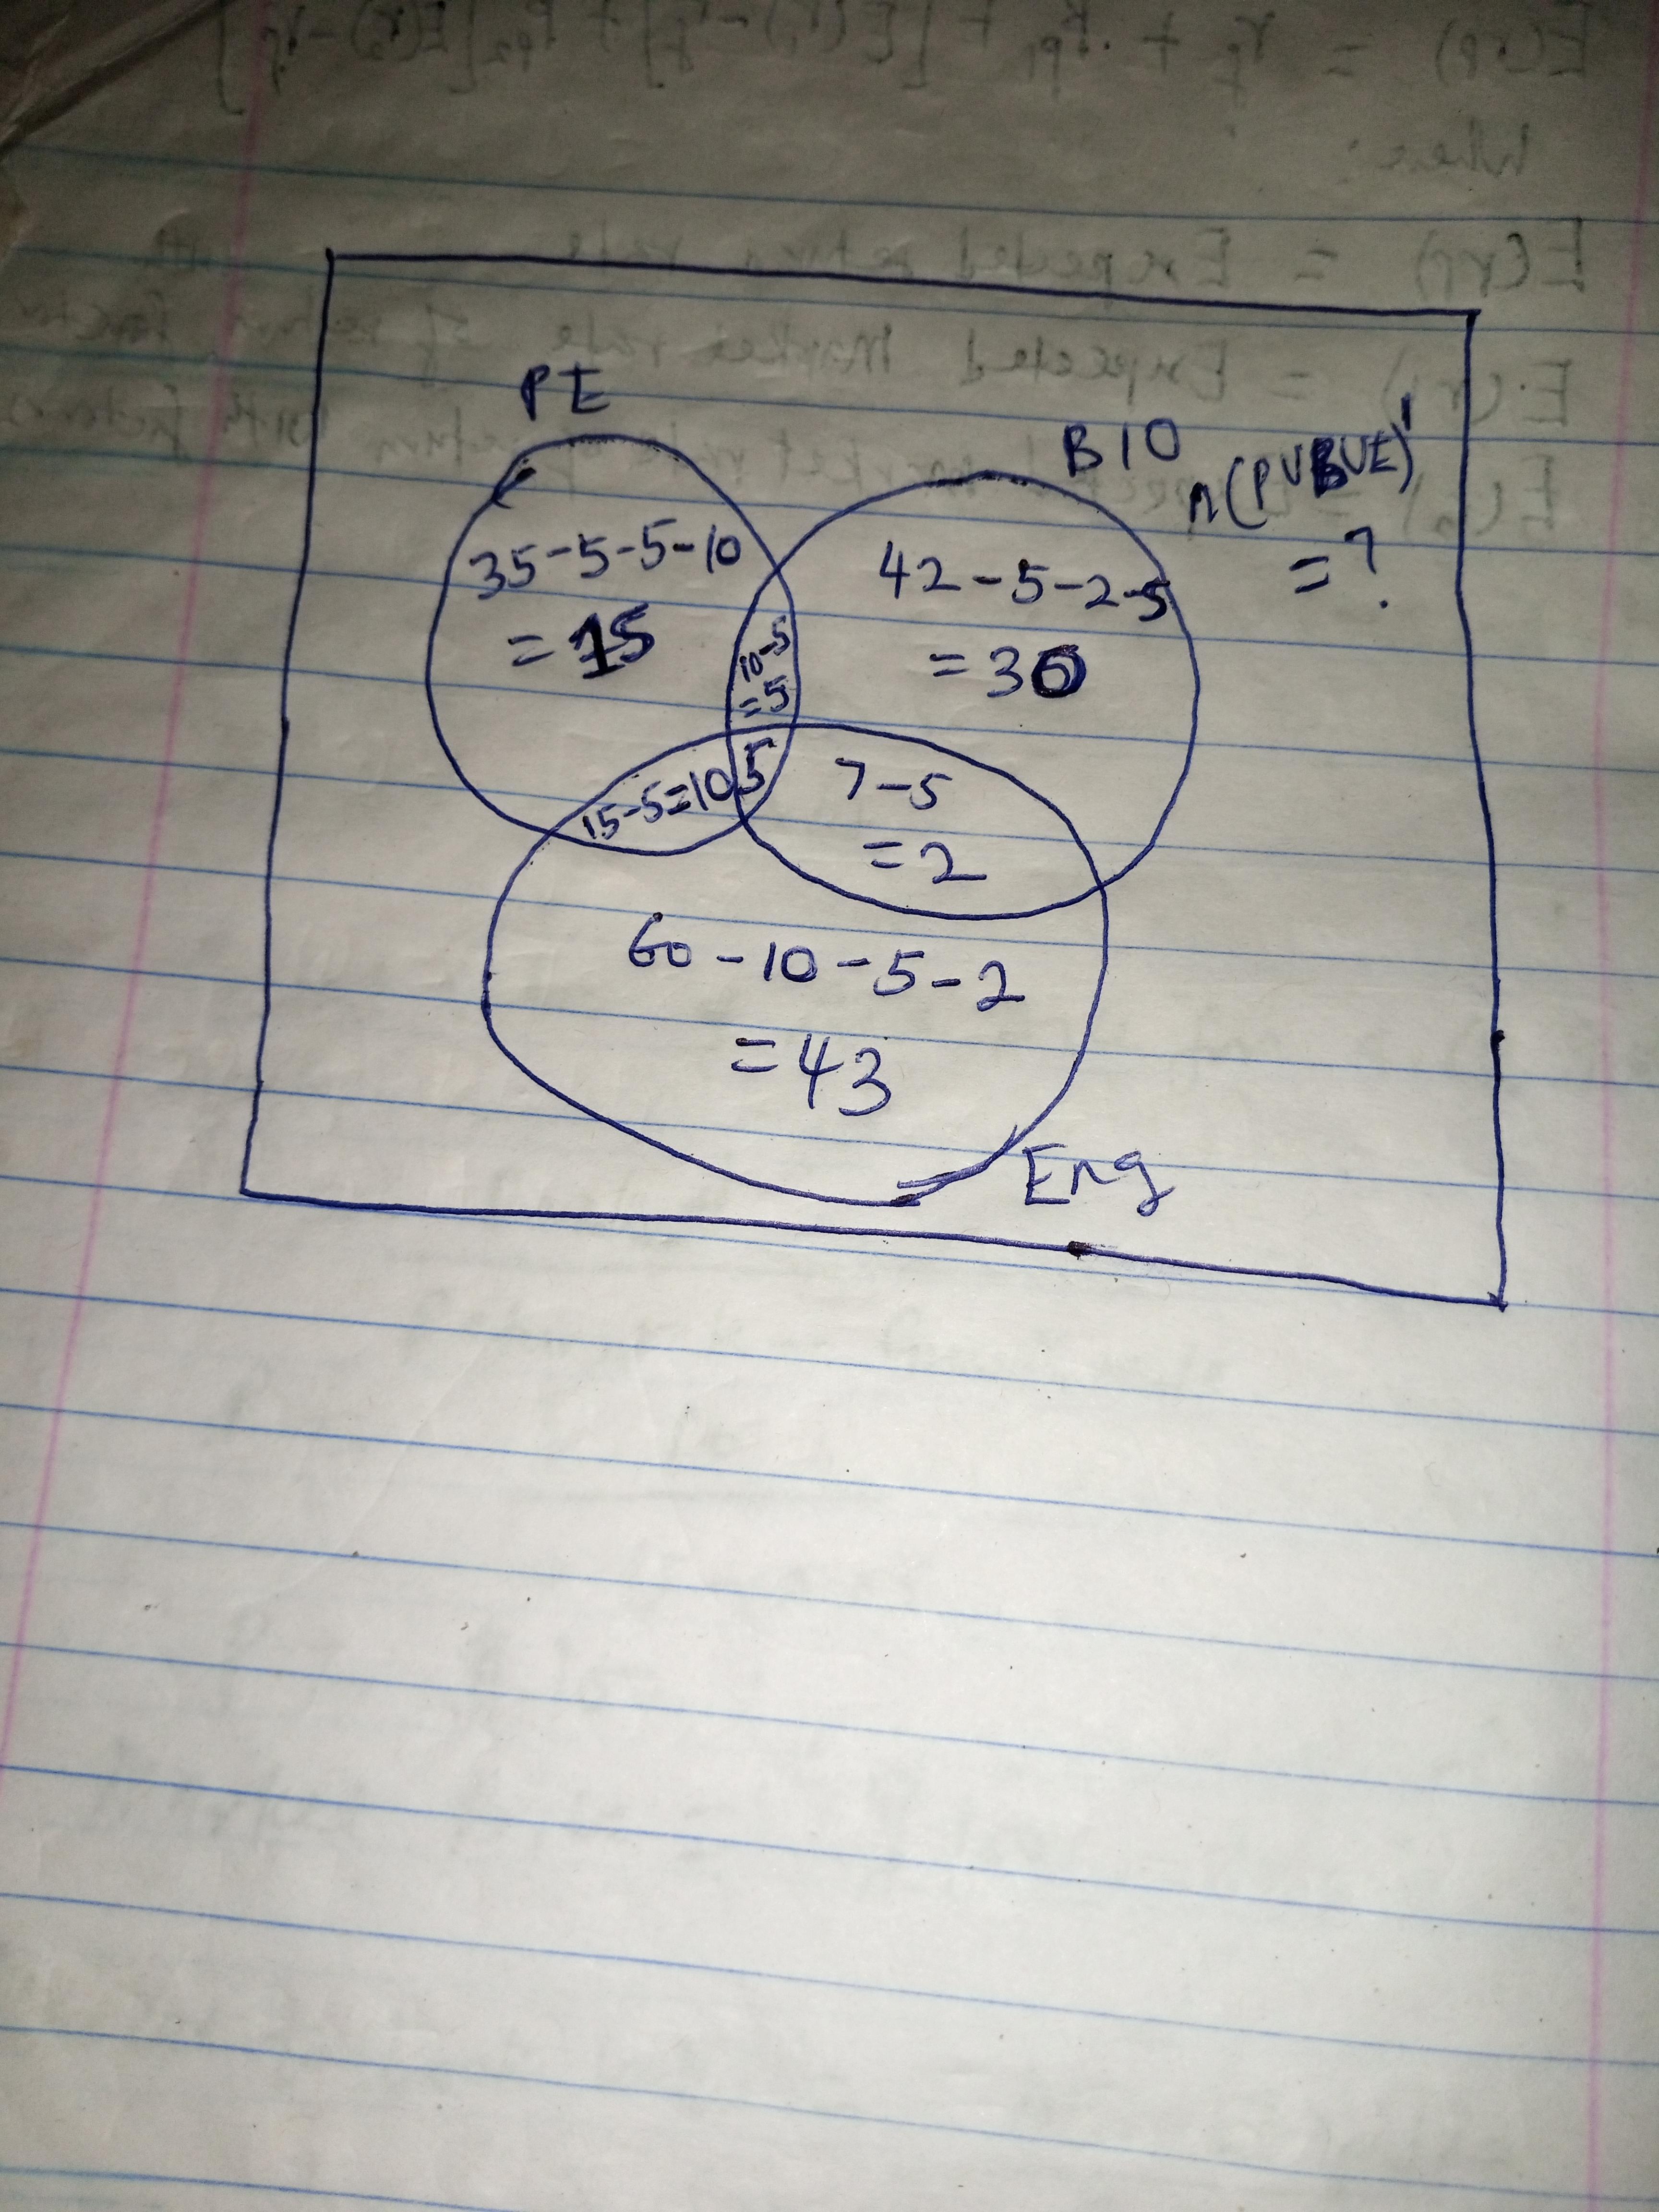 PE
BIO
n(PUBUE)'
= ?
35-5-5-10
= 15
42-5-2-5
= 30
10-5
=5
15-5=10
5
7-5
=2
60-10-5-2
=43
Eng